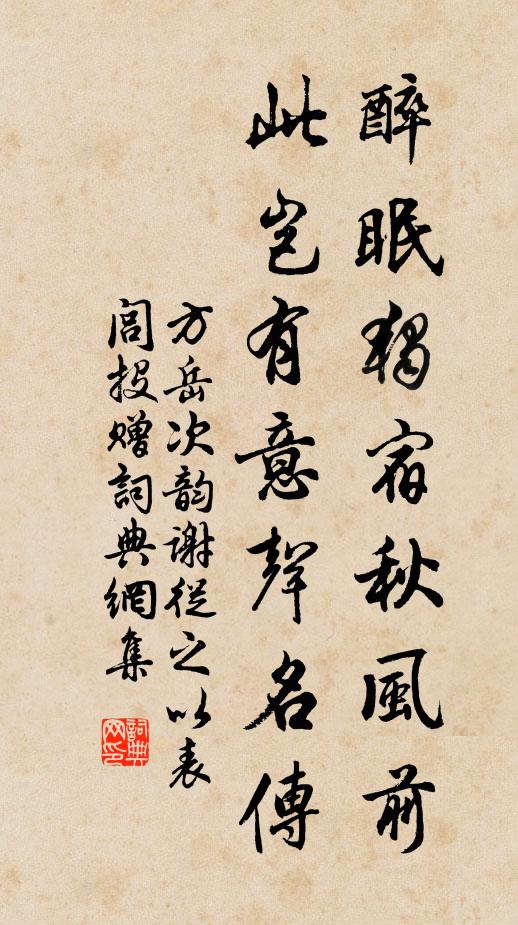 醉眠獨宿秋風前
此豈有意聲名傳
方岳次韵謝從之以表
閭投贈詞典網集
詞典
网印